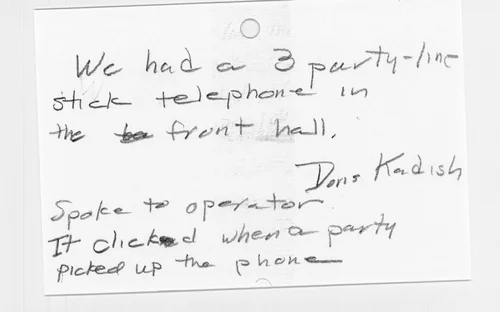 We had a 3 party-line
stick telephone in
the front hall.
Doris Kadish
Spoke to operator
It clicked when a party
picked up the phone